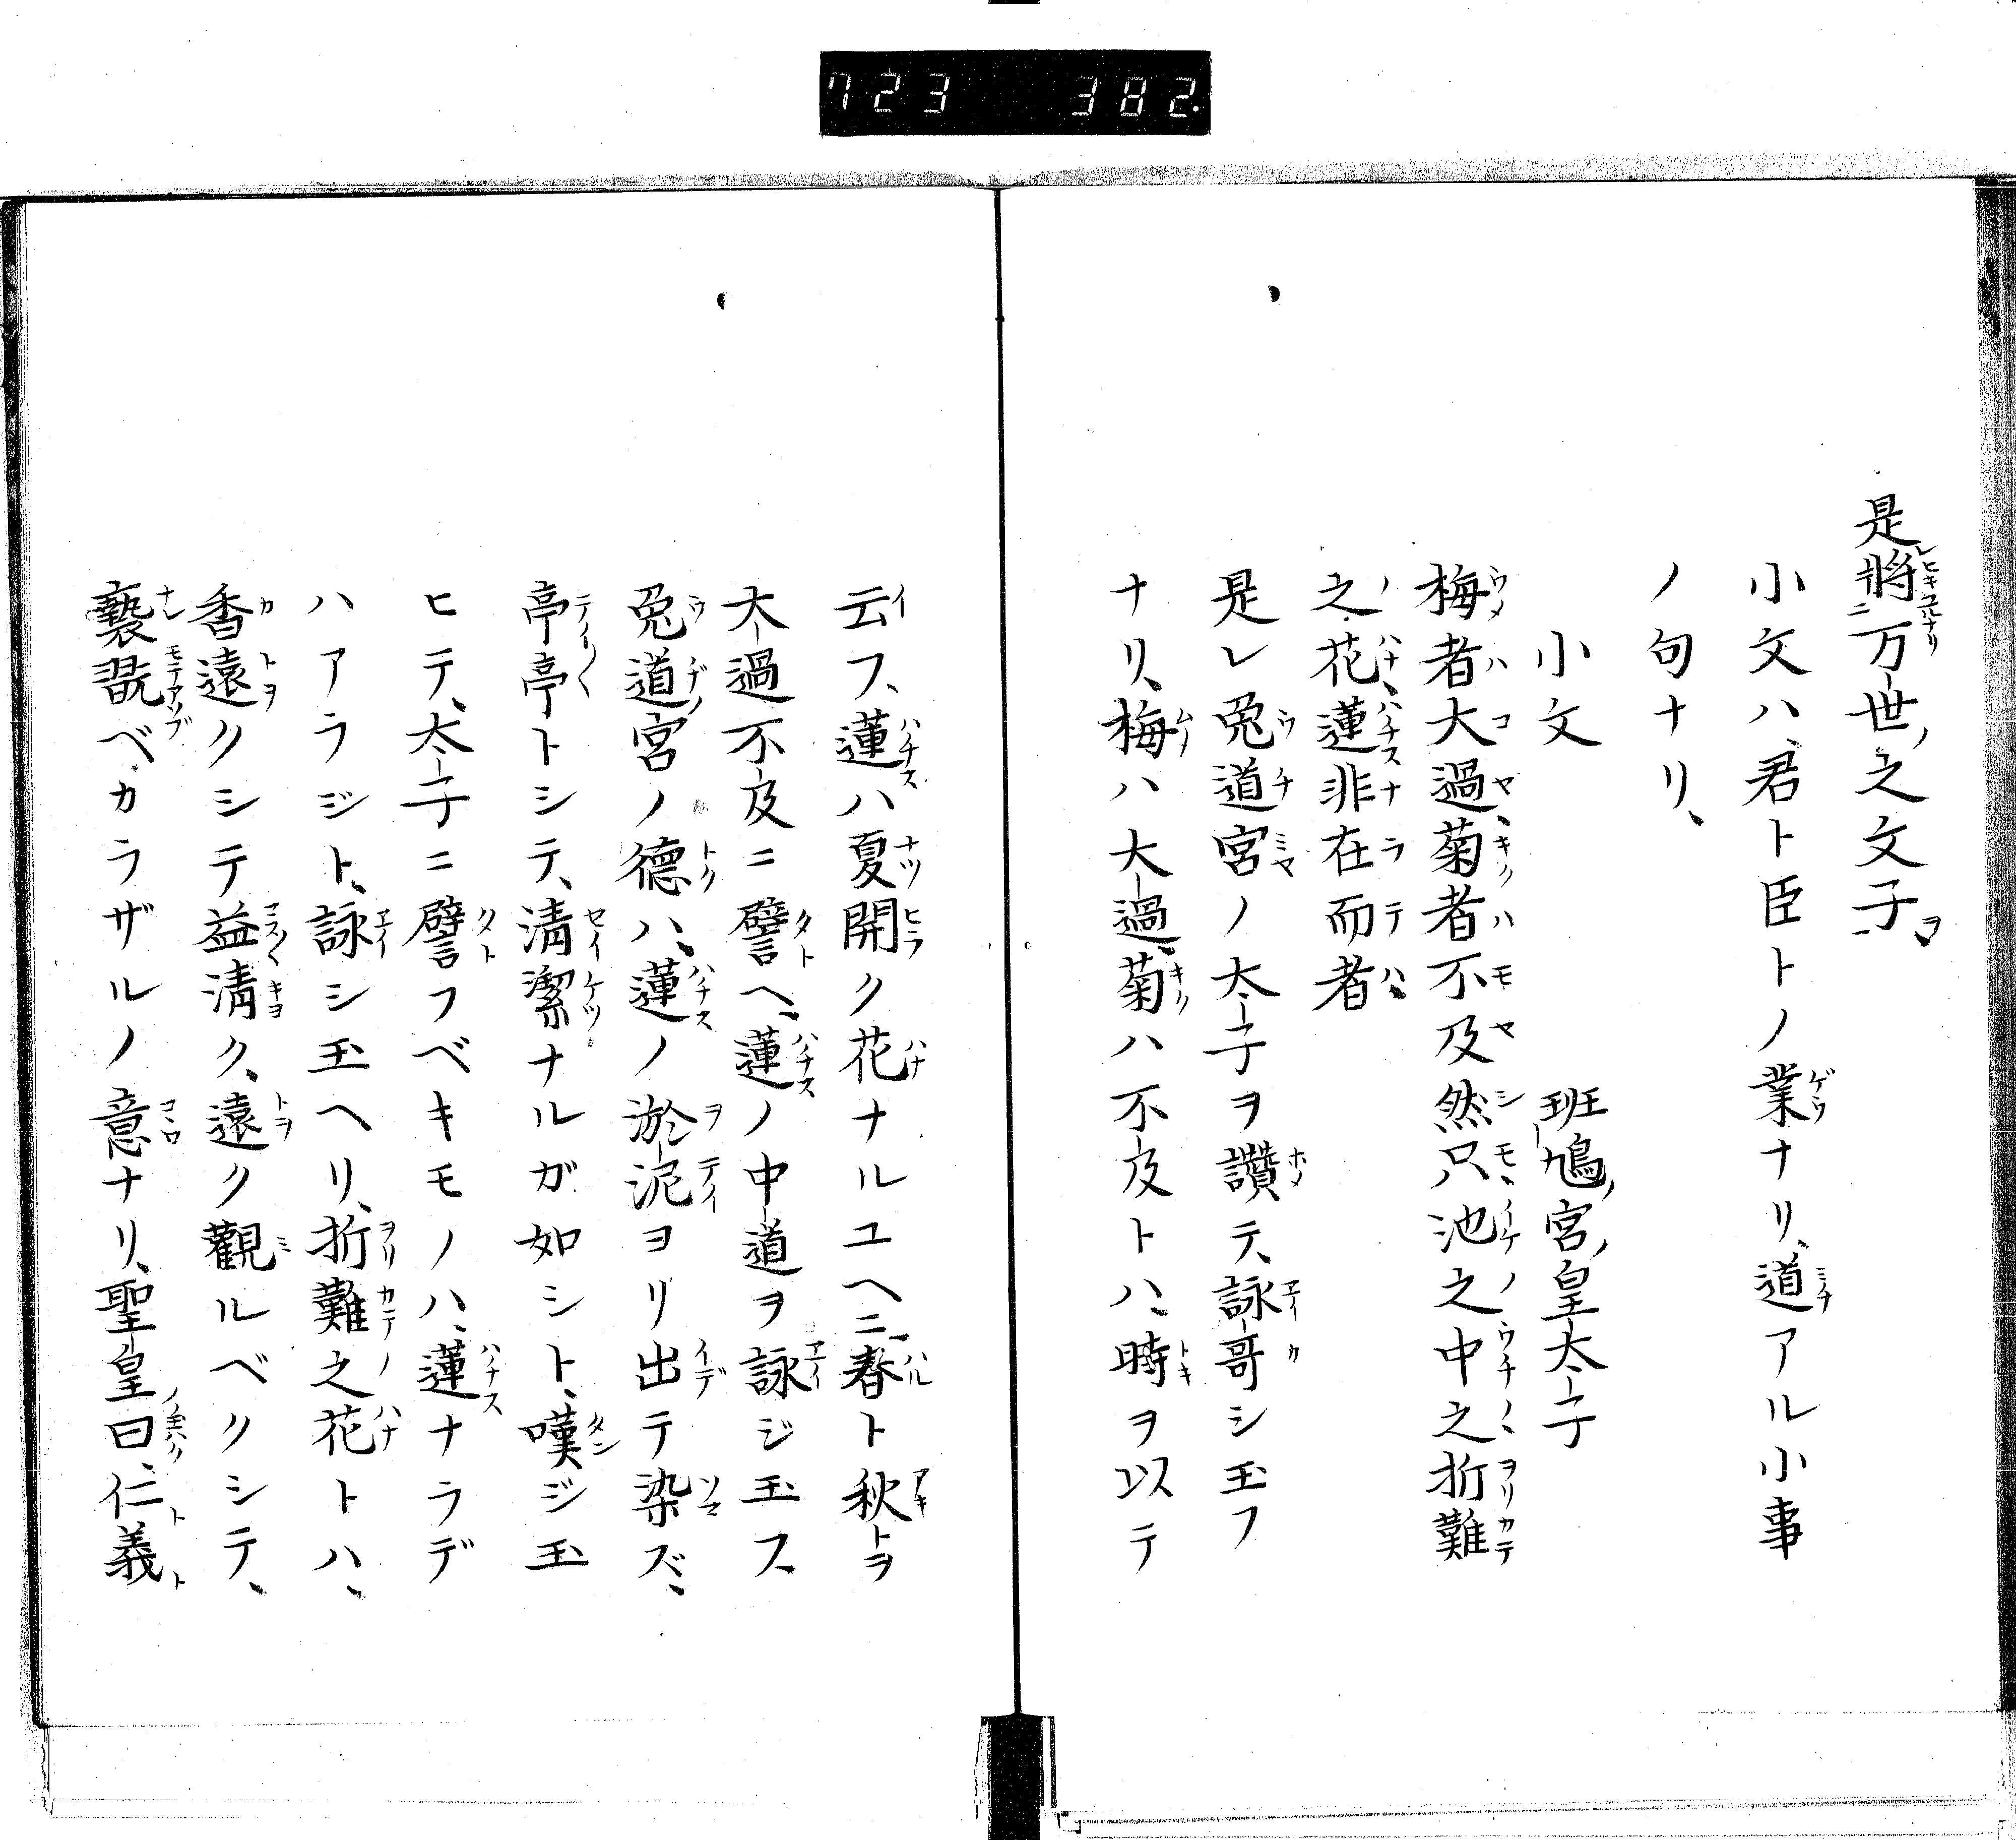 723 382.
是將万世之文子
小文ハ、君ト臣トノ業ナリ、道アル小事
ノ句ナリ、
小文 班鳩宮皇太子
梅者大過、菊者不及然只池之中之折難
之花、蓮非在而者
是レ兔道宮ノ太子ヲ讚テ、詠哥シ玉フ
ナリ、梅ハ大過、菊ハ不及トハ、時ヲ以テ
云フ、蓮ハ夏開ク花ナルユヘニ、春ト秋トヲ
大過不及ニ譬ヘ、蓮ノ中道ヲ詠ジ玉フ、
兔道宮ノ德ハ、蓮ノ淤泥ヨリ出テ染ズ、
亭亭トシテ、淸潔ナルガ如シト、嘆ジ玉
ヒテ、太子ニ譬フベキモノハ、蓮ナラデ
ハアラジト、詠シ玉ヘリ、折難之花トハ、
香遠クシテ益淸ク、遠ク觀ルベクシテ、
褻翫ベカラザルノ意ナリ、聖皇曰、仁義